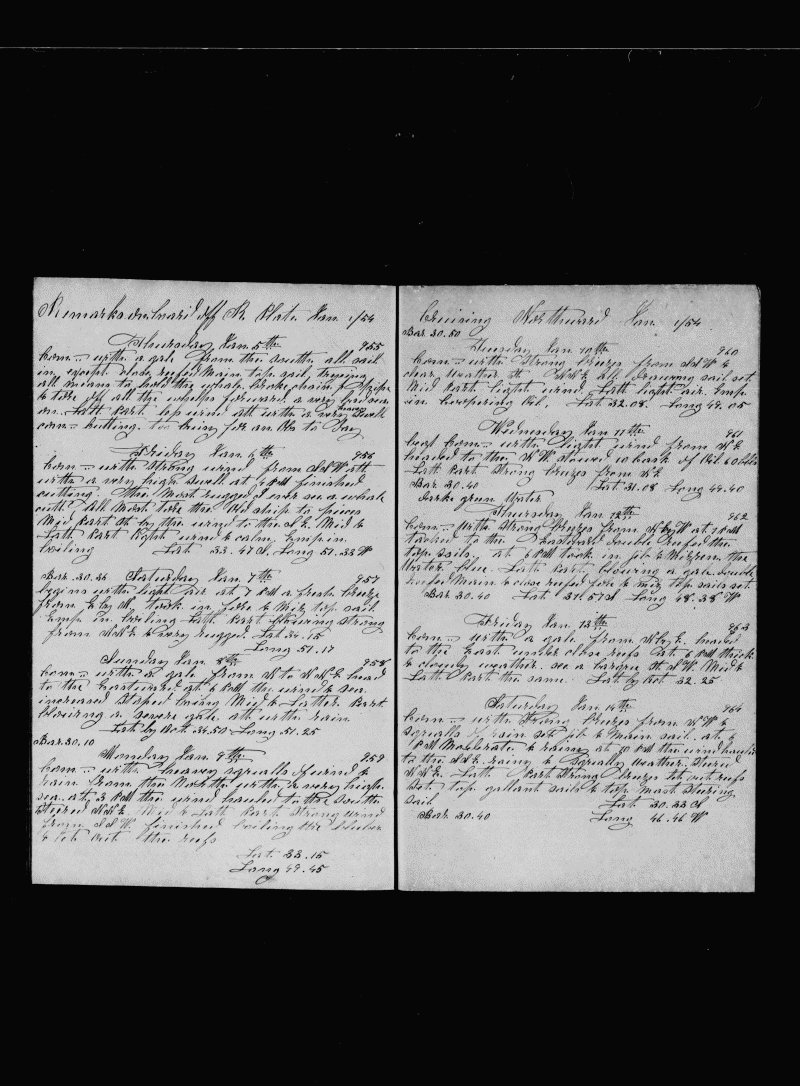 Remarks on board off R. Plate Jan 1/54
Thursday Jan. 5th 955
Com-- with a gale from the south all sail
in except close reefed Main top sail, trying
all means to hold the whale. broke chain
& tore off all the a very bad sea
on. Latt part wind att with a very heavy swell
com-- cutting.
Friday Jan. 6th 956
Com-- with strong wind from SSW att
with a very high swell at PM finished
cutting. The most rugged I ever see a whale
cutt. All most tore the old ship to pieces
Mid part by the wind to the S.E. Mid &
Latt part light wind & calm. Emp in
boiling Lat 33.47 S, Long 51.33 W
Bar. 30.36 Saturday Jan. 7th 957
begins with light air at 7 PM a fresh breeze
from E by N, took in fore & Miz top sail
Emp in boiling Latt part blowing strong
from NNE & very rugged. Lat 34.15
Long 51.17
Sunday Jan. 8th 958
Com-- with a gale from N to NNE head
to the Eastward at 6 PM the wind & sea
increased Mid & Latter part
blowing a severe gale att with rain
Lat by Bot 34.50 Long 51.25
Bar. 30.10
Monday Jan. 9th 959
Com-- with heavey squalls of wind &
rain from the North with a very high
sea. at 3 PM the wind hauled to the South
steered NNE Mid & Latt part strong wind
from SSW. finished boiling the blubber
& let out the reefs
Lat. 33.15
Long 49.45
Cruising Northward Jan. 1/54
Bar. 30.50
Tuesday Jan. 10th 960
Com-- with strong breeze from SSW &
clear weather St NNE all drawing sail set
Mid part light wind Latt light air. Emp
in Coopering Oil, Lat 32.08. Long 49.05
Wednesday Jan 11th 961
Com-- with light wind from NE
headed to the NW stowed 10 bbls
Latt part strong breeze from NE
Bar 30.40 Lat 31.08 Long 49.40
darke green Water
Thursday Jan 12th 962
Com-- with strong breeze from N by W at 1 PM
tacked to the Eastward double reefed the
top sails. at 6 PM took in jib & Mizzen. the
Water blue. Latt part blowing a gale. double
reefed Main & close reefed fore & miz top sails set
Bar 30.40 Lat 31.57 S Long 48.38 W
Friday Jan 13th 963
Com-- with a gale from N by E, headed
to the East under close reefs at 6 PM thick
& cloudy weather. see a barque St S.W. Mid &
Latt part the same. Lat by Bot 32.25
Saturday Jan 14th 964
Com-- with strong breeze from NW &
squalls of rain set jib & Main sail. at 6
PM Moderate & raining at 10 PM the wind hauled
to the SSE. rainy & squally weather. steered
NNE. Latt part strong breeze let out reefs
set top gallant sails & top Mast steering
sail Lat 30.33 S
Bar 30.40 Long 46.46 W